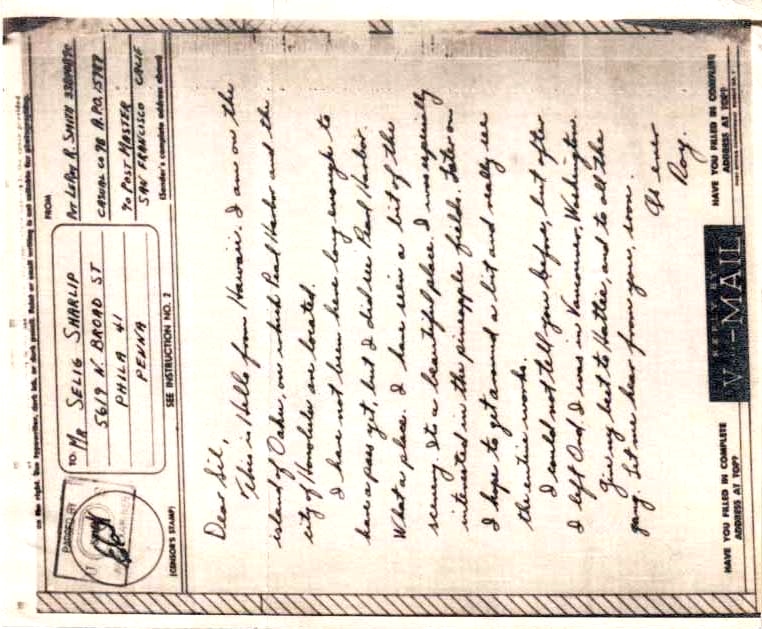 on the right. Use typewriter, dark ink, or dark pencil. Faint or small writing is not suitable for photographing.
PASSED BY
(CENSOR'S STAMP)
TO: MR SELIG SHARLIP
5619 N. BROAD ST
PHILA 41
PENNA
SEE INSTRUCTION NO. 2
FROM
PVT LEROY R. SMITH
CASUAL CO 98 A.P.O. 15797
℅ POST MASTER
SAN FRANCISCO CALIF
(Sender's complete address above)
Dear Sil,
This is Hello from Hawaii. I am on the
island of Oahu, on which Pearl Harbor and the
city of Honolulu are located.
I have not been here long enough to
have a pass yet, but I did see Pearl Harbor.
What a place. I have seen a bit of the
scenery. Its a beautiful place. I was especially
interested in the pineapple fields. Later on
I hope to get around a bit and really see
the entire works.
I could not tell you before, but after
I left Ord, I was in Vancouver, Washington.
Give my best to Hattie, and to all the
gang. Let me hear from you, soon.
As ever
Roy.
HAVE YOU FILLED IN COMPLETE
ADDRESS AT TOP?
REPLY BY
V···—MAIL
HAVE YOU FILLED IN COMPLETE
ADDRESS AT TOP?